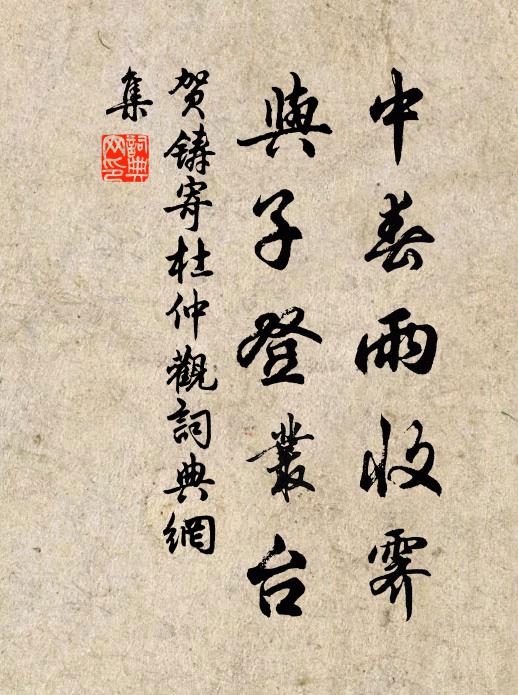 中春雨收霽
與子登叢台
賀鑄寄杜仲觀詞典網
集
詞典
网印